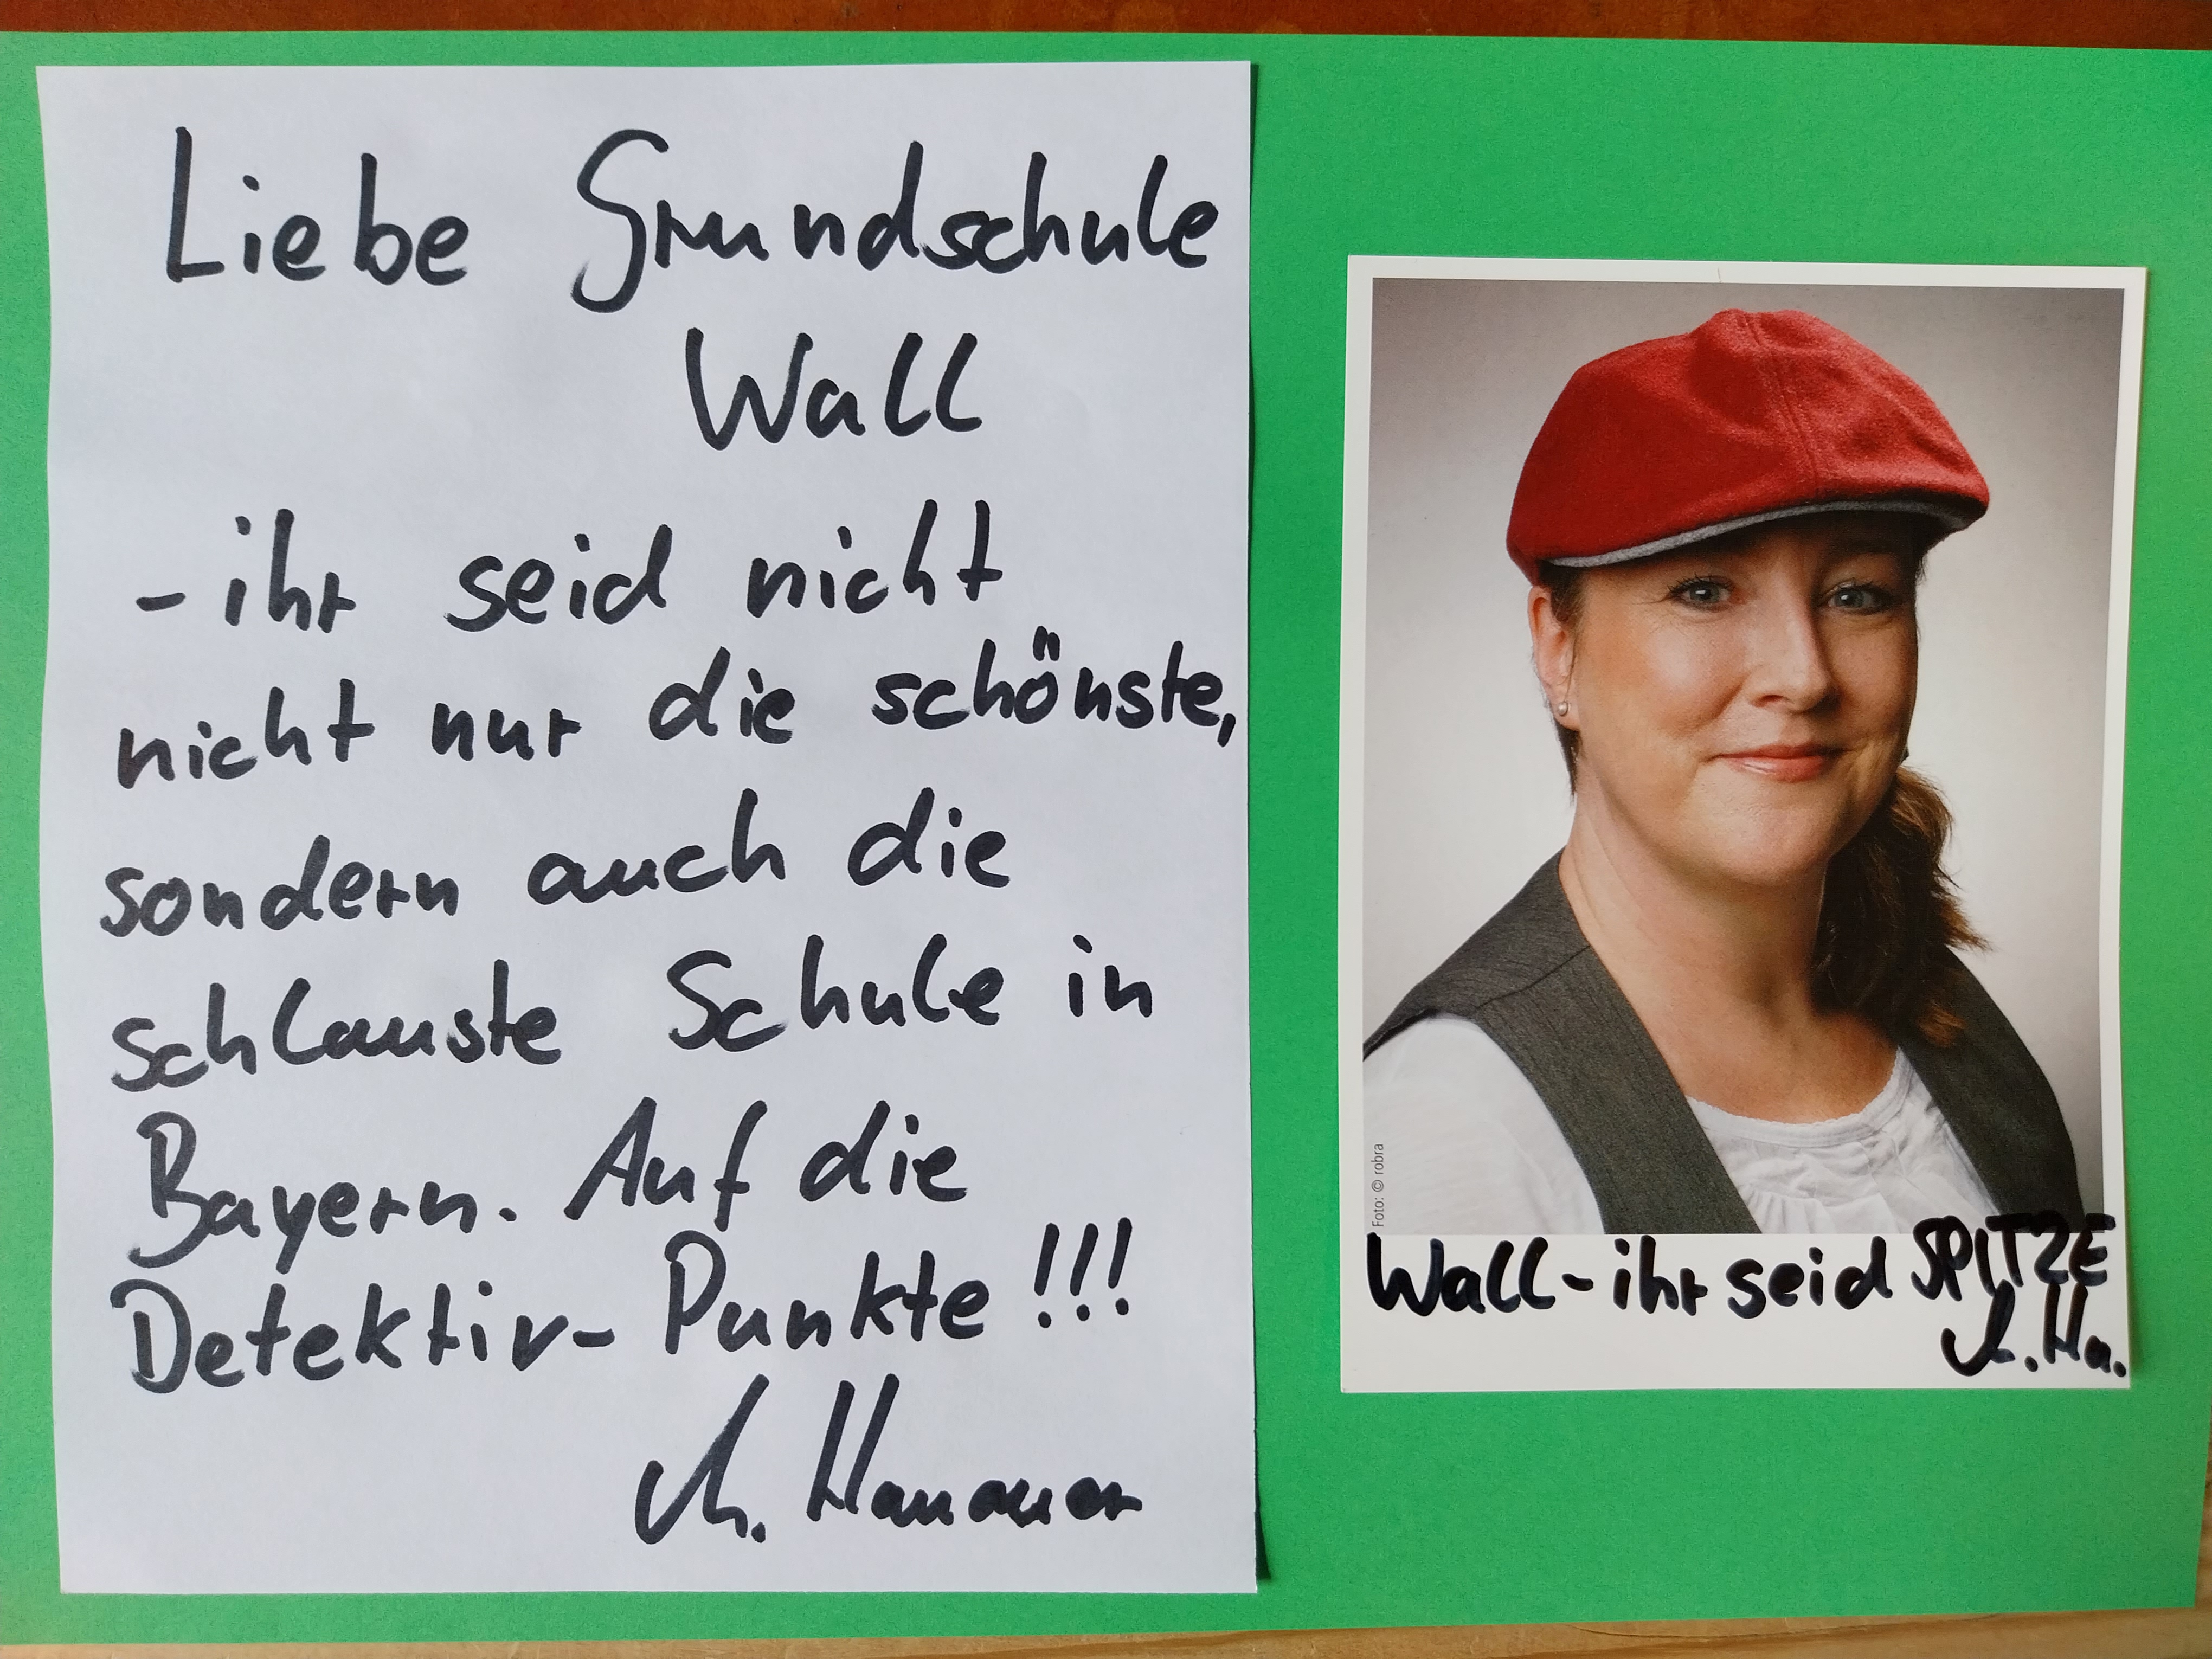 Liebe Grundschule
Wall
- ihr seid nicht
nicht nur die schönste,
sondern auch die
schlauste Schule in
Bayern. Auf die
Detektiv- Punkte!!!
M. Hanauer
Foto: © robra
Wall - ihr seid SPITZE
M. Ha.